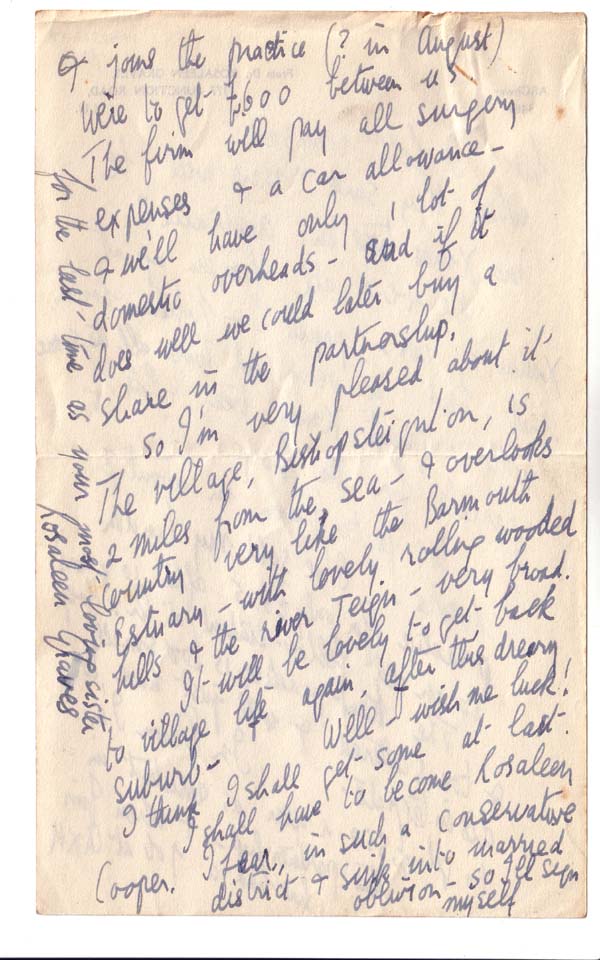 & joins the practice (? in August)
We're to get £600 between us
The firm will pay all surgery
expenses & a car allowance -
& we'll have only 1 lot of
domestic overheads - and if it
does well we could later buy a
share in the partnership.
So I'm very pleased about it
The village, Bishopsteignton, is
2 miles from the sea - & overlooks
country very like the Barmouth
Estuary - with lovely rolling wooded
hills & the river Teign - very broad.
It will be lovely to get back
to village life again, after this dreary
suburb - Well - wish me luck!
I think I shall get some at last.
I shall have to become Rosaleen
Cooper, I fear, in such a conservative
district & sink into married
oblivion - so I'll sign
myself
for the last time as your most loving sister
Rosaleen Graves